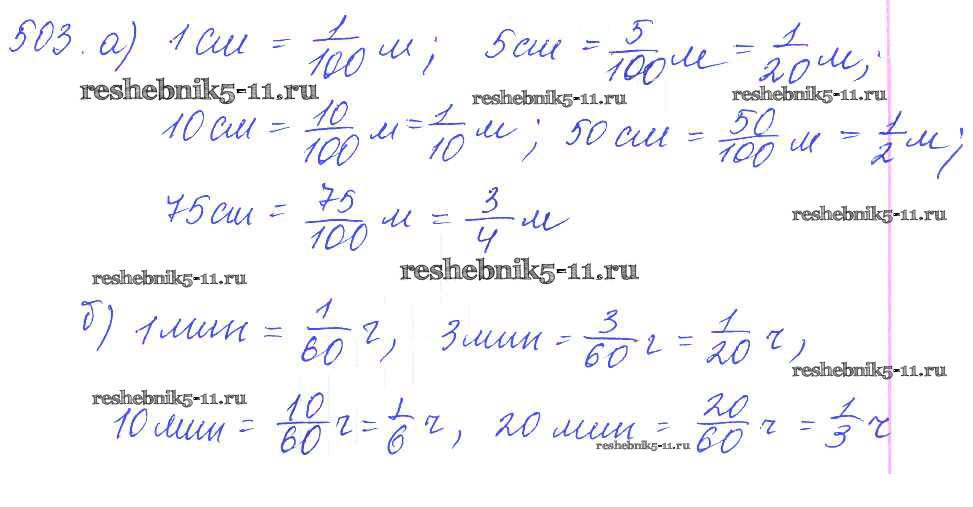 503. а) 1 см = 1/100 м; 5 см = 5/100 м = 1/20 м;
reshebnik5-11.ru reshebnik5-11.ru reshebnik5-11.ru
10 см = 10/100 м = 1/10 м; 50 см = 50/100 м = 1/2 м;
75 см = 75/100 м = 3/4 м
reshebnik5-11.ru
reshebnik5-11.ru reshebnik5-11.ru
б) 1 мин = 1/60 ч, 3 мин = 3/60 ч = 1/20 ч,
reshebnik5-11.ru
reshebnik5-11.ru
10 мин = 10/60 ч = 1/6 ч, 20 мин = 20/60 ч = 1/3 ч
reshebnik5-11.ru